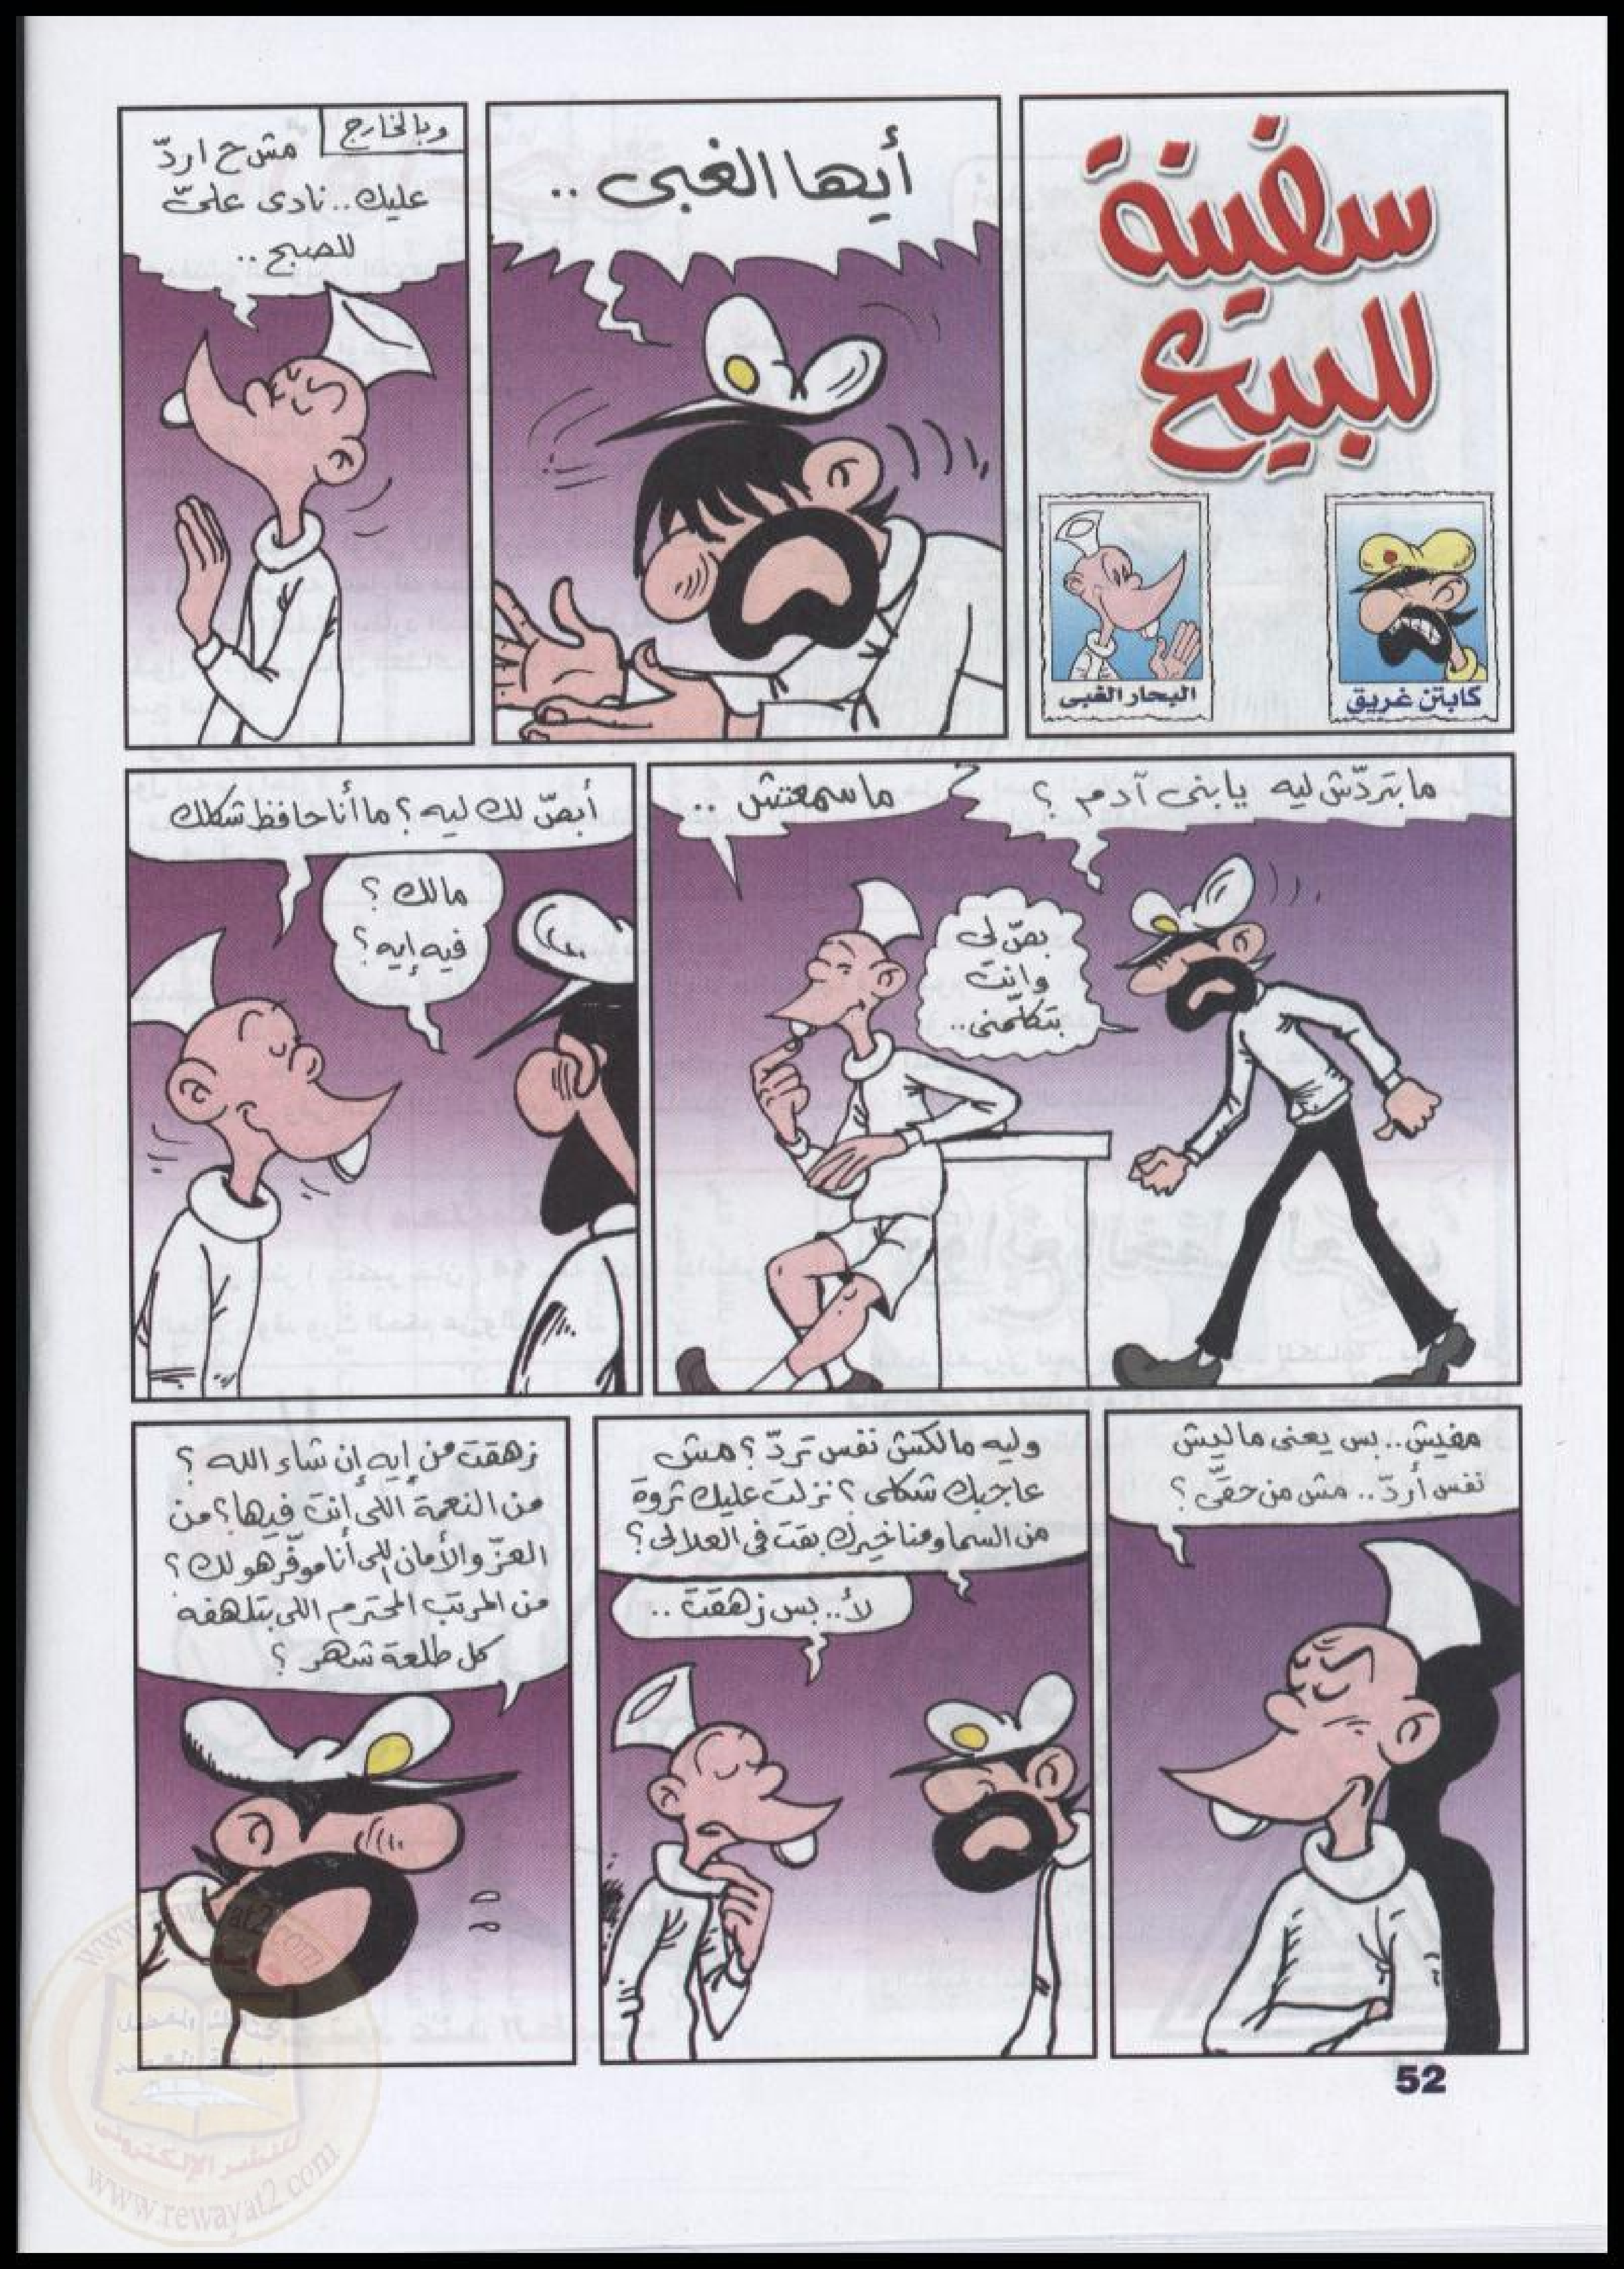 سفينة
للبيع
كابتن غريق
البحار الغبى
أيها الغبى ..
وبالخارج
مش ح اردّ
عليك.. نادى علىّ
للصبح ..
ما بتردّش ليه يا بنى آدم ؟
ما سمعتش ..
بصّ لى
وانت
بتكلّمنى..
أبصّ لك ليه ؟ ما أنا حافظ شكلك
مالك ؟
فيه إيه ؟
مفيش.. بس يعنى ماليش
نفس أردّ.. مش من حقّى ؟
وليه مالكش نفس تردّ ؟ مش
عاجبك شكلى ؟ نزلت عليك ثروة
من السما ومناخيرك بقت فى العلالى ؟
لأ.. بس زهقت ..
زهقت من إيه إن شاء الله ؟
من النعمة اللى أنت فيها ؟ من
العزّ والأمان اللى أنا موفّرهولك ؟
من المرتب المحترم اللى بتلهفه
كل طلعة شهر ؟
52
www.rewayat2.com
للنشر الإلكترونى
www.rewayat2.com